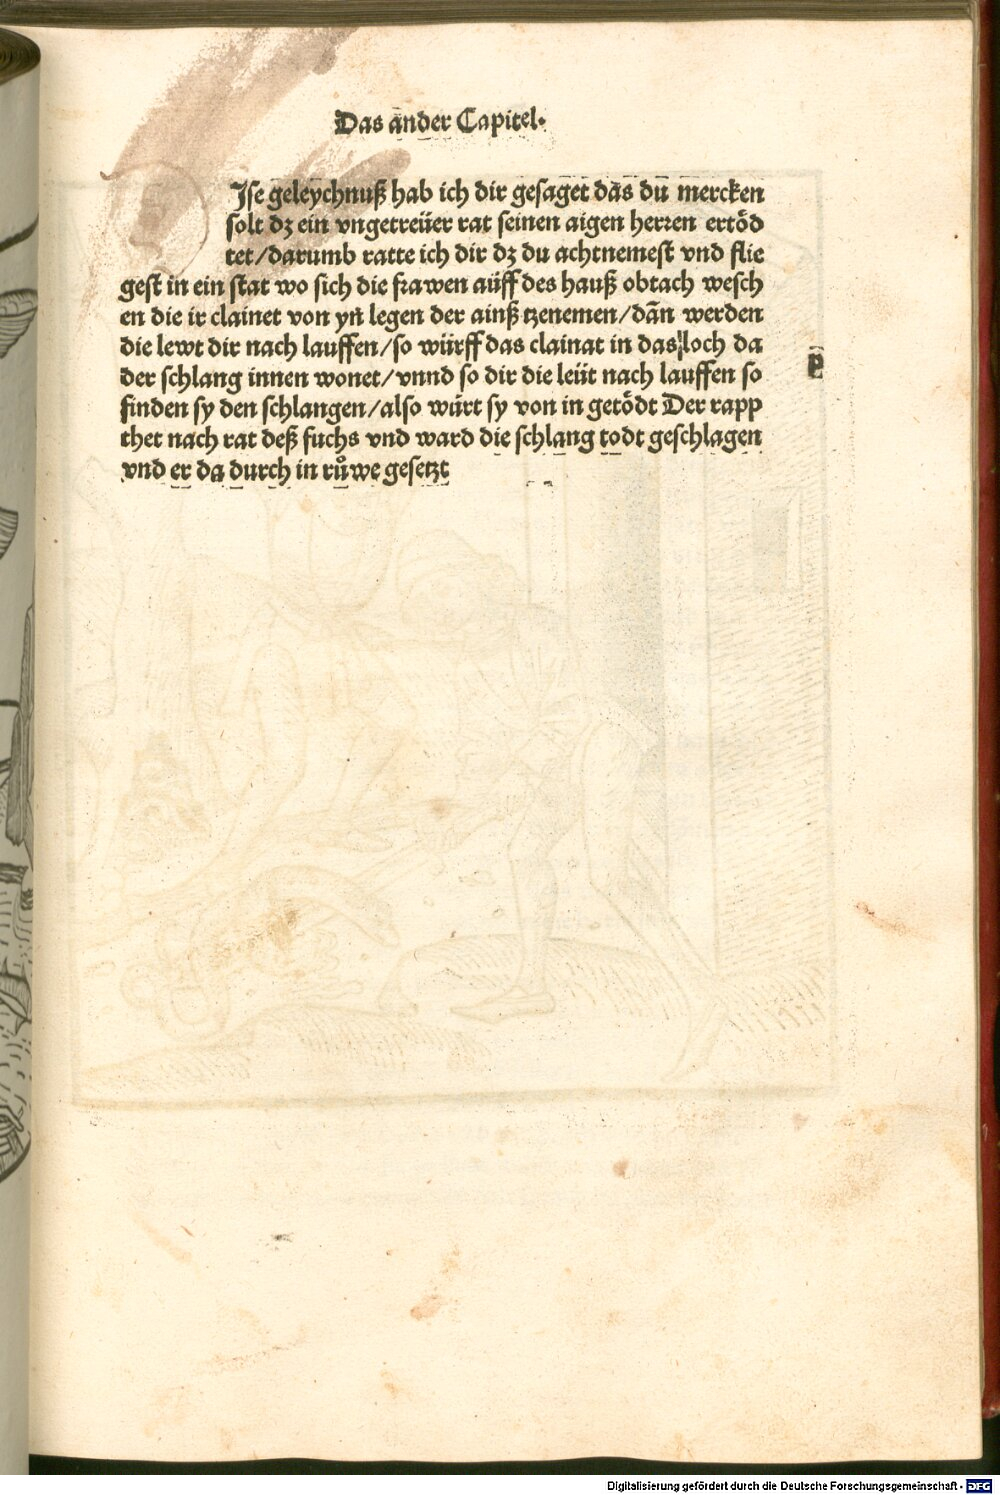 Das ander Capitel.
Jse geleychnuß hab ich dir gesaget das du mercken
solt dz ein vngetreüer rat seinen aigen herren ertöd
tet/darumb ratte ich dir dz du achtnemest vnd flie
gest in ein stat wo sich die frawen aüff des hauß obtach wesch
en die ir clainet von yn legen der ainß tzenemen/dān werden
die lewt dir nach lauffen/so würff das clainat in das loch da
der schlang innen wonet/vnnd so dir die leüt nach lauffen so
finden sy den schlangen/also würt sy von in getödt Der rapp
thet nach rat deß fuchs vnd ward die schlang todt geschlagen
vnd er da durch in růwe gesetzt
Digitalisierung gefördert durch die Deutsche Forschungsgemeinschaft - DFG